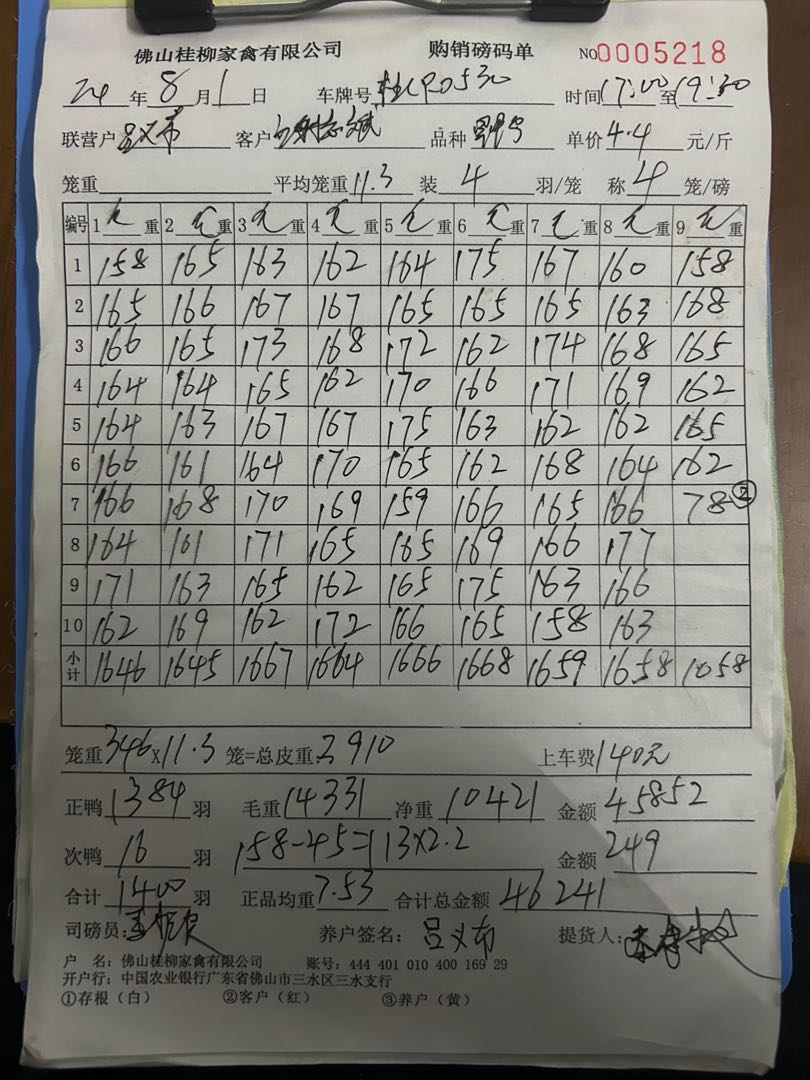 佛山桂柳家禽有限公司 购销磅码单 NO 0005218
24 年 8 月 1 日 车牌号 桂CR0530 时间 17:00 至 19:30
联营户 吕义布 客户 品种 单价 4.4 元/斤
笼重 平均笼重 11.3 装 4 羽/笼 称 4 笼/磅
编号 1 毛 重 2 毛 重 3 毛 重 4 毛 重 5 毛 重 6 毛 重 7 毛 重 8 毛 重 9 毛 重
1 158 165 163 162 164 175 167 160 158
2 165 166 167 167 165 165 165 163 168
3 166 165 173 168 172 162 174 168 165
4 164 164 165 162 170 166 171 169 162
5 164 163 167 167 175 163 162 162 165
6 166 161 164 170 165 162 168 164 162
7 166 168 170 169 159 166 165 166 78 ②
8 164 161 171 165 165 169 166 177
9 171 163 165 162 165 175 163 166
10 162 169 162 172 166 165 158 163
小计 1646 1645 1667 1664 1666 1668 1659 1658 1058
笼重 346 X 11.3 笼=总皮重 3910 上车费 140元
正鸭 1384 羽 毛重 14331 净重 10421 金额 45852
次鸭 16 羽 158-45=113×2.2 金额 249
合计 1400 羽 正品均重 7.53 合计总金额 46241
司磅员: 养户签名: 吕义布 提货人:
户 名: 佛山桂柳家禽有限公司 账号: 444 401 010 400 169 29
开户行: 中国农业银行广东省佛山市三水区三水支行
①存根（白） ②客户（红） ③养户（黄）